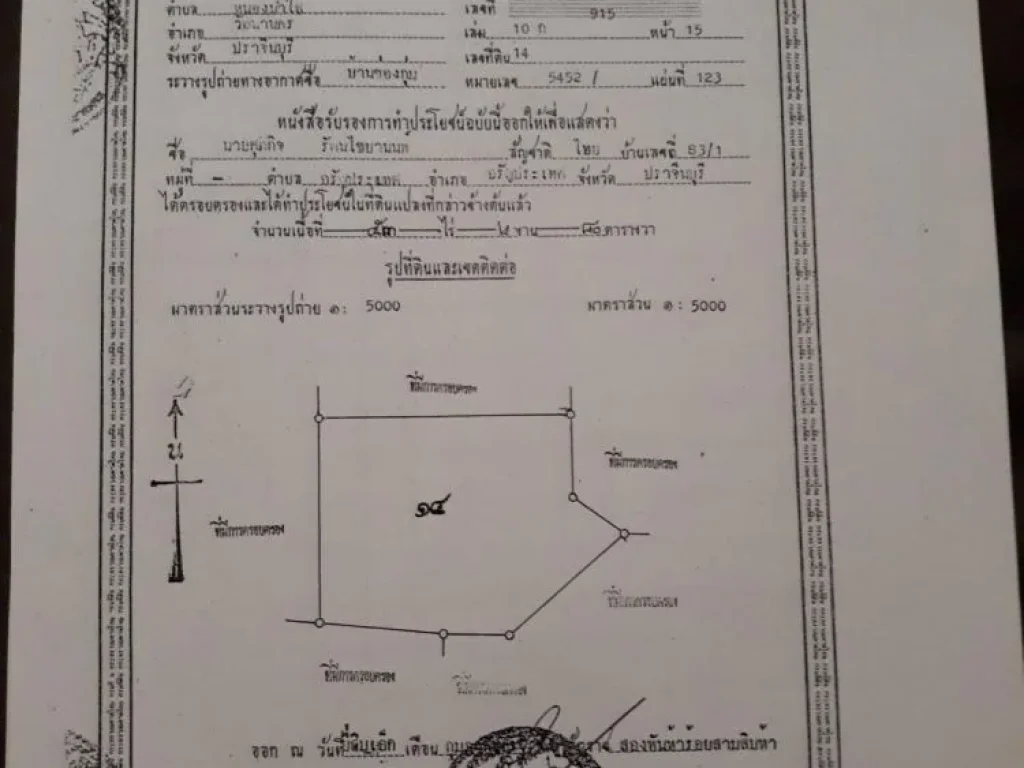 ตำบล หนองน้ำใส เลขที่ 915
อำเภอ วัฒนานคร เล่ม 10 ก หน้า 15
จังหวัด ปราจีนบุรี เลขที่ดิน 14
ระวางรูปถ่ายทางอากาศชื่อ บ้านช่องกุ่ม หมายเลข 5452 / แผ่นที่ 123
หนังสือรับรองการทำประโยชน์ฉบับนี้ออกให้เพื่อแสดงว่า
ชื่อ สัญชาติ ไทย บ้านเลขที่ 83/1
หมู่ที่ – ตำบล อรัญประเทศ อำเภอ อรัญประเทศ จังหวัด ปราจีนบุรี
ได้ครอบครองและได้ทำประโยชน์ในที่ดินแปลงที่กล่าวข้างต้นแล้ว
จำนวนเนื้อที่ ๕๓ ไร่ งาน ๘๐ ตารางวา
รูปที่ดินและเขตติดต่อ
มาตราส่วนระวางรูปถ่าย ๑: 5000 มาตราส่วน ๑ : 5000
ที่มีการครอบครอง
น
ที่มีการครอบครอง
๑๔
ที่มีการครอบครอง
ที่มีการครอบครอง
ที่มีการครอบครอง
ที่มีการครอบครอง
ออก ณ วันที่ ยี่สิบเอ็ด เดือน สองพันห้าร้อยสามสิบห้า